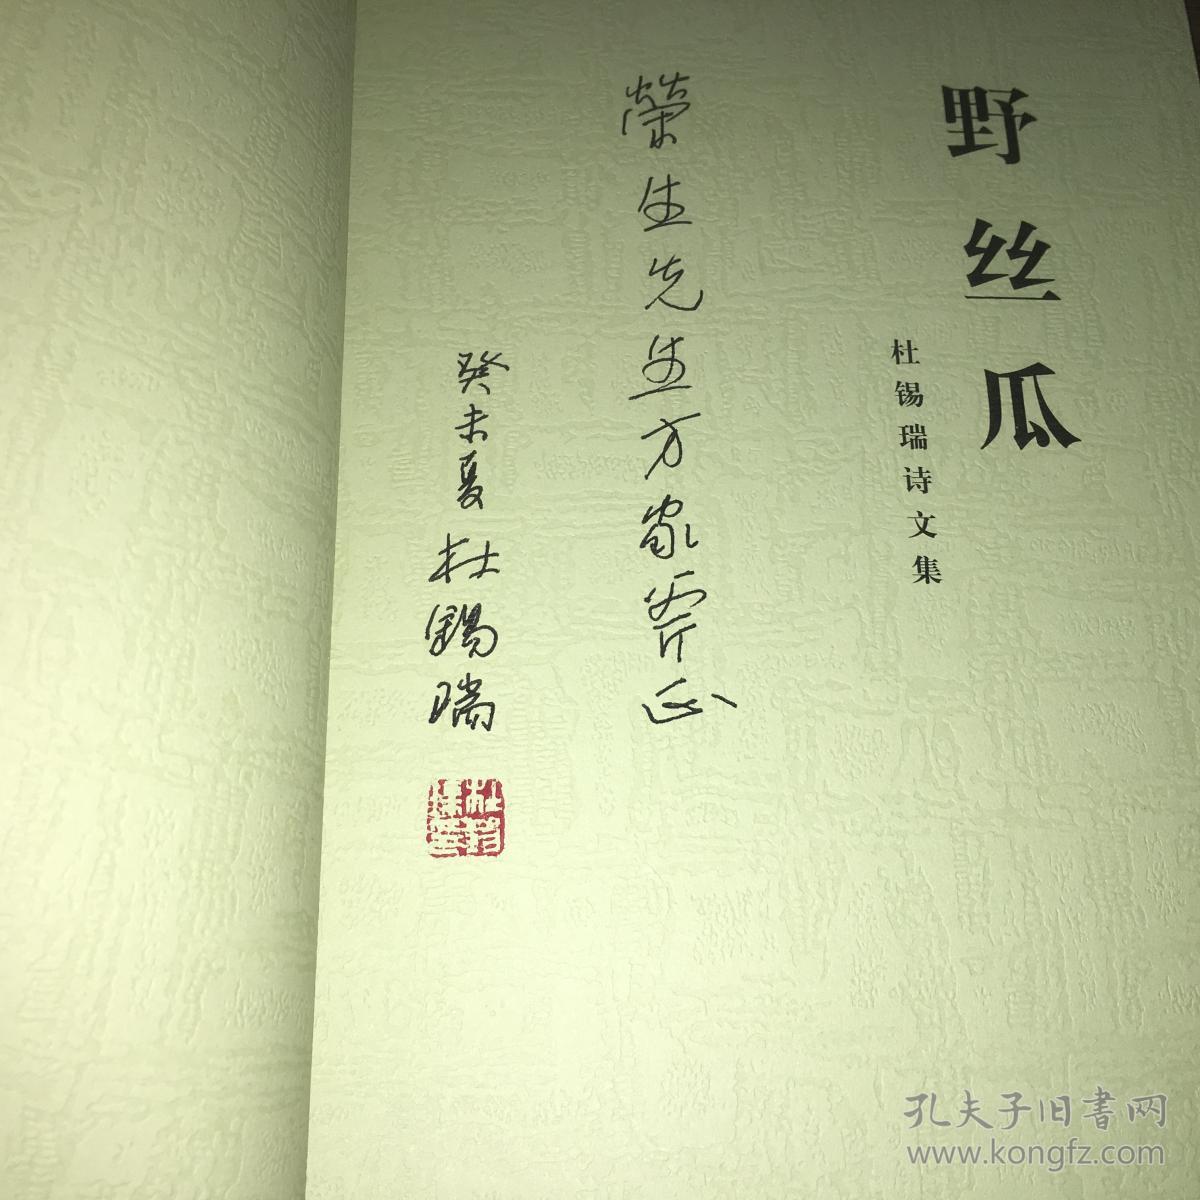 野丝瓜
杜锡瑞诗文集
榮生先生方家斧正
癸未夏 杜錫瑞
孔夫子旧书网
www.kongfz.com